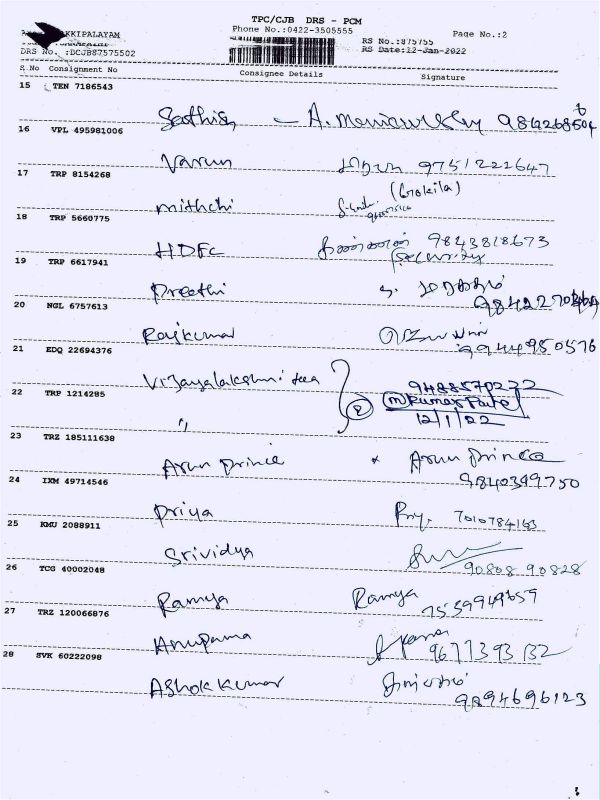 TPC/CJB DRS - PCM
KKIPALAYAM Phone No.:0422-3505555 Page No.:2
RS No.:875755
DRS No. :DCJB87575502 RS Date:12-Jan-2022
S.No Consignment No Consignee Details Signature
15 TEN 7186543
Sathish - A.
16 VPL 495981006
Varun 9751222647
17 TRP 8154268
mithchi (Gokila)
18 TRP 5660775
HDFC 9843818673
Security
19 TRP 6617941
Preethi
20 NGL 6757613
Rajkumar 9944950576
21 EDQ 22694376
Vijayalakshmi tea 9488570222
22 TRP 1214285
" 2 12/1/22
23 TRZ 185111638
Arun prince x Arun prince
9840399750
24 IXM 49714546
Priya Pry. 7010784163
25 KMU 2088911
Srividya 90808 90828
26 TCG 40002048
Ramya Ramya 7559949659
27 TRZ 120066876
Anupama 9677393132
28 SVK 60222098
Ashok kumar 9894696123